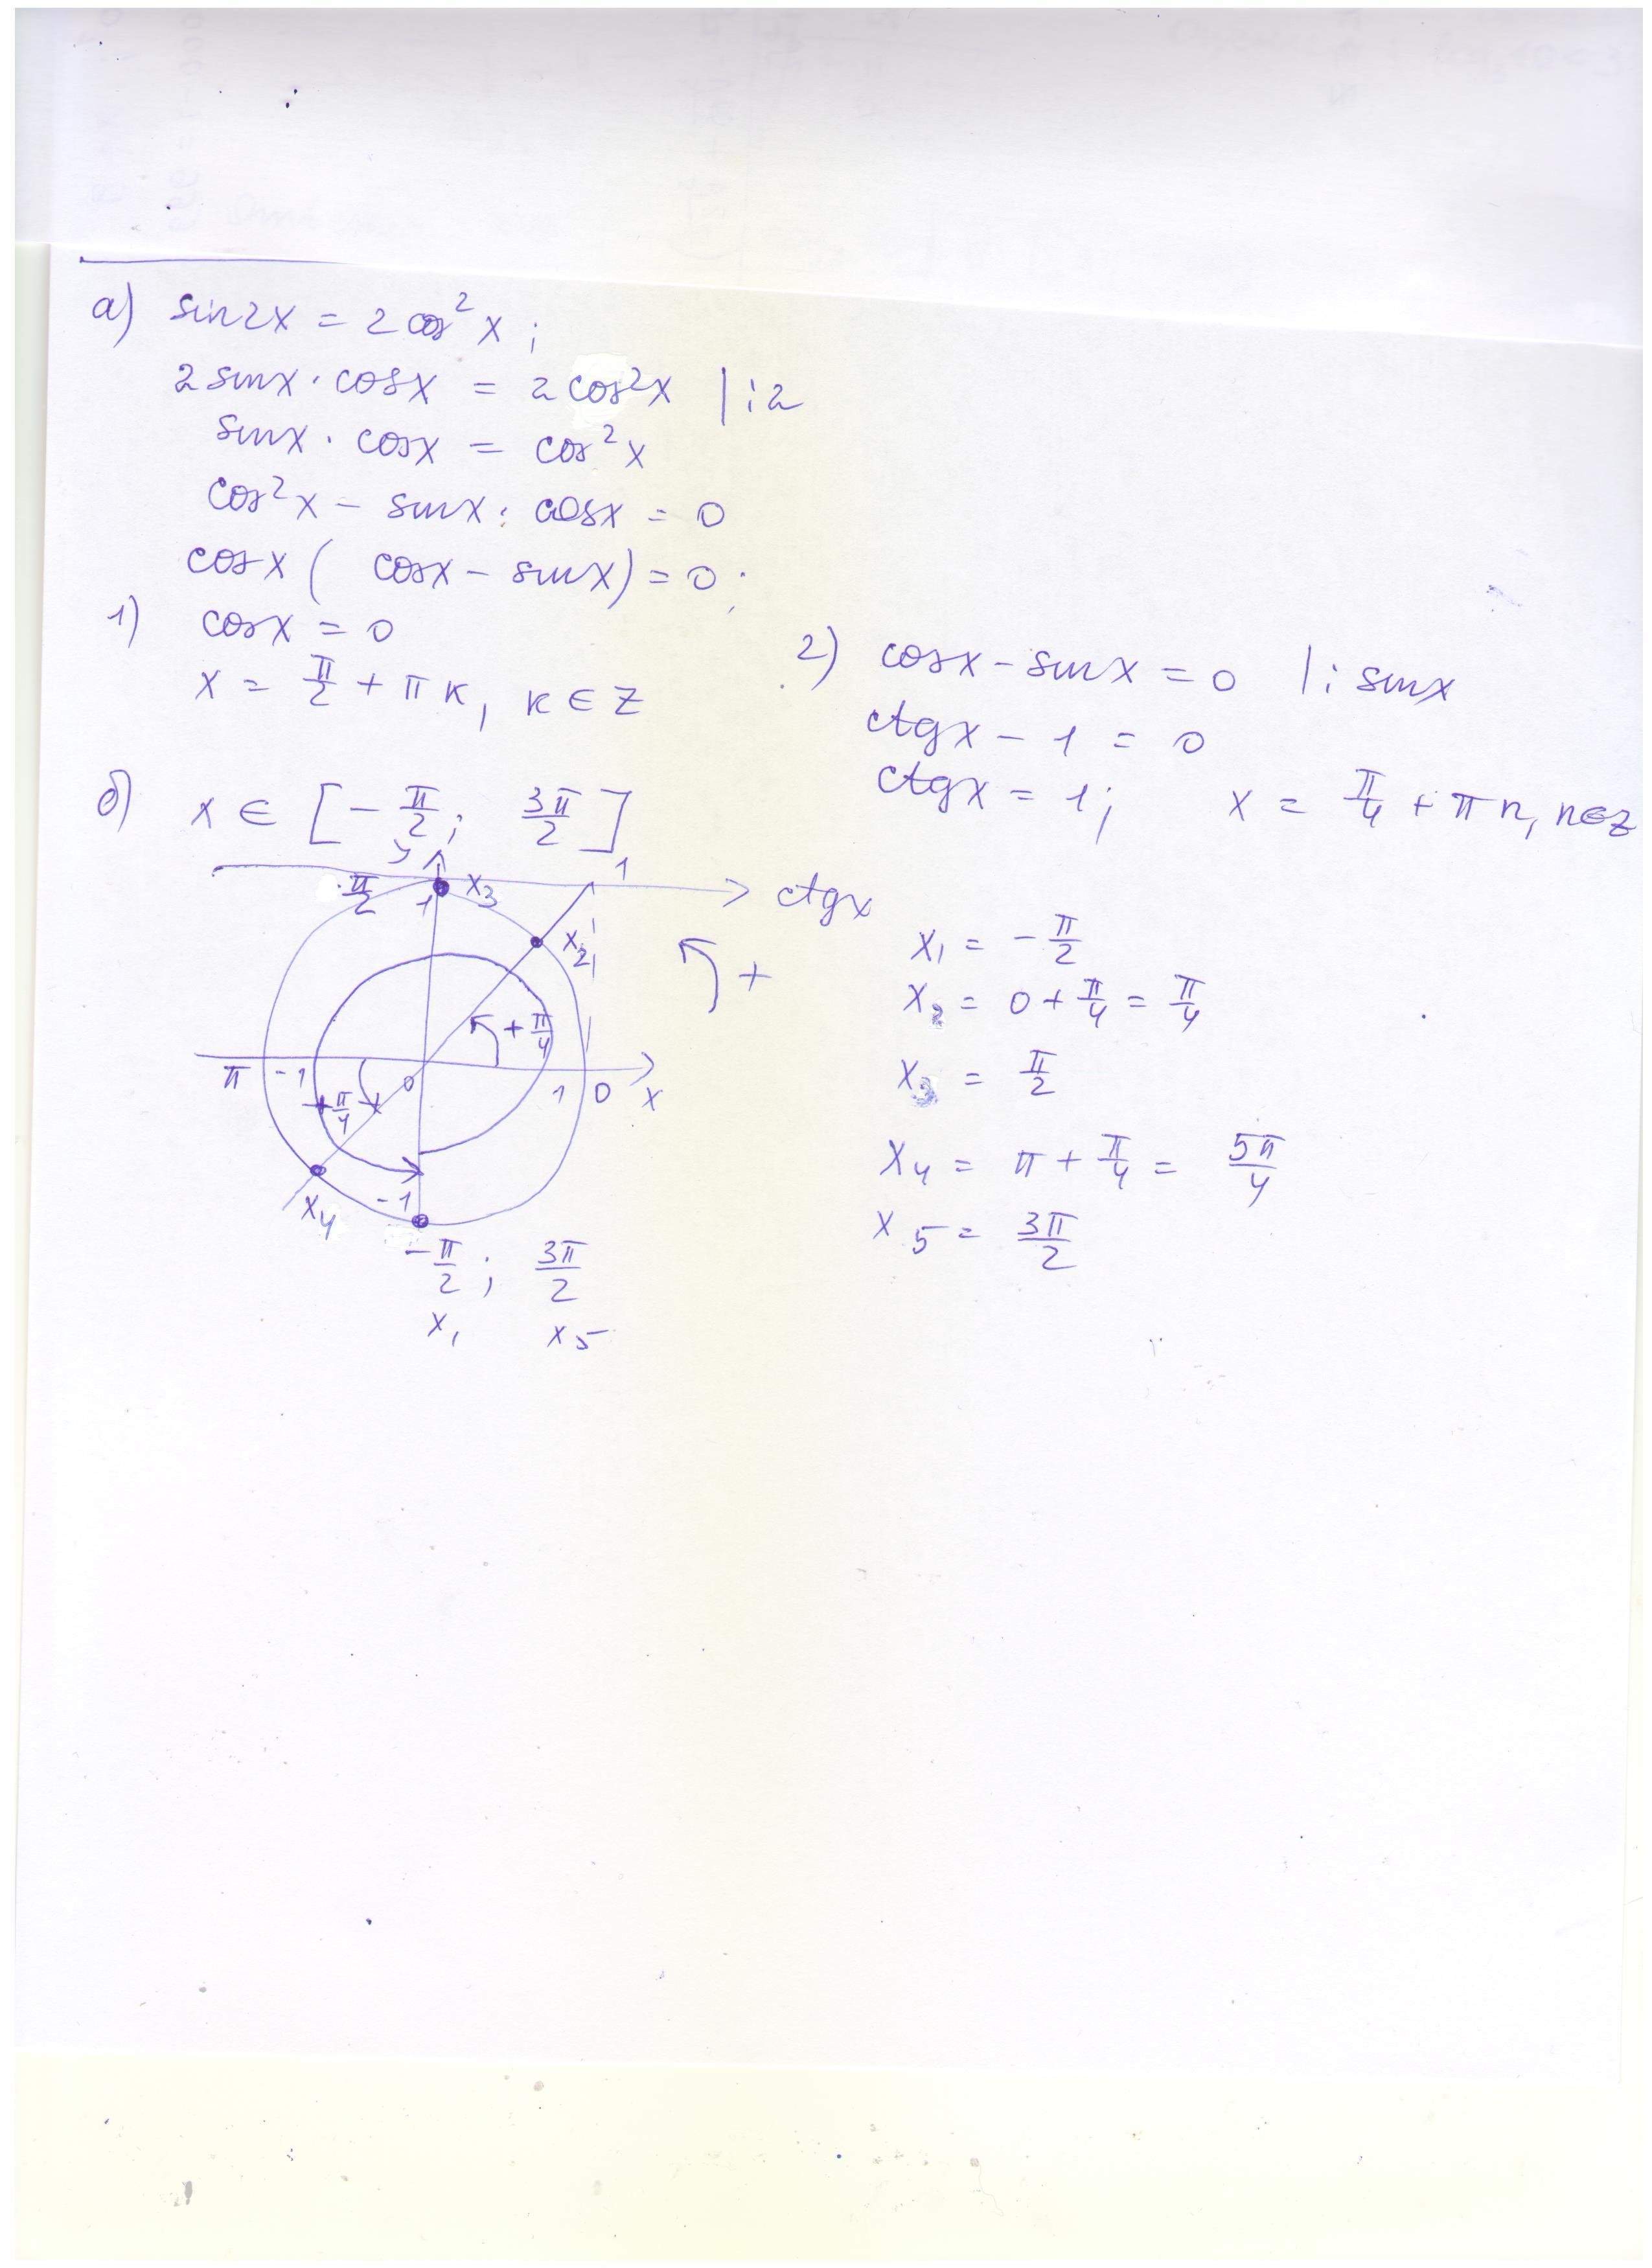 а) sin2x = 2cos²x;
2sinx · cosx = 2cos²x |:2
sinx · cosx = cos²x
cos²x − sinx · cosx = 0
cosx ( cosx − sinx) = 0;
1) cosx = 0
x = π/2 + πк, к ∈ Z
2) cosx − sinx = 0 |: sinx
ctgx − 1 = 0
ctgx = 1; x = π/4 + πn, n∈Z
б) x ∈ [−π/2; 3π/2]
y 1
π/2 1 x₃ ctgx
x₂
+
+π/4
π −1 0 1 0 x
+π/4
x₄ −1
−π/2; 3π/2
x₁ x₅
x₁ = −π/2
x₂ = 0 + π/4 = π/4
x₃ = π/2
x₄ = π + π/4 = 5π/4
x₅ = 3π/2